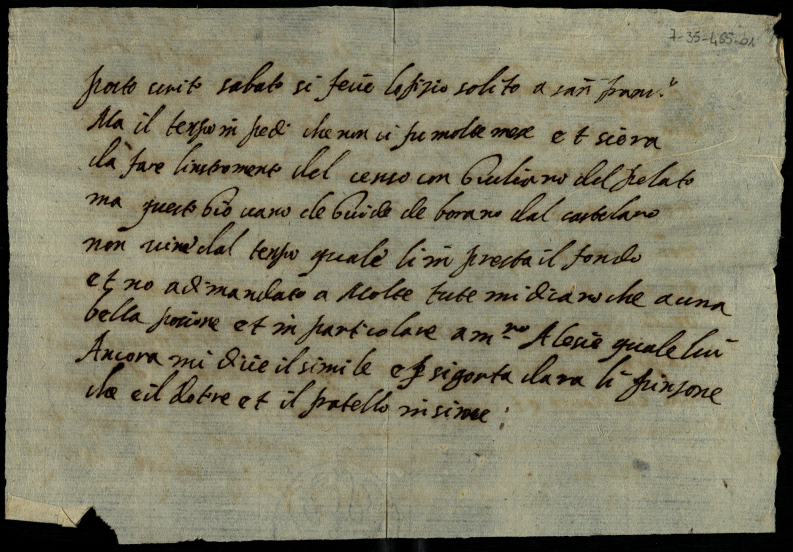 7-35-465-01
sabato si fece lofizio solito a san franc.º
Ma il tempo in pedi che non vi fu molte mese et siera
da fare linstromento del censo con Giuliano del pelato
ma questo Giovano de Guide de borano dal castelano
non vine dal tempo quale li in presta il fondo
et no adimandato a Molte tute mi dicano che a una
bella pocione et in particolare a m.ro Alesie quale lui
Ancora mi dice il simile e p sigorta dara li
che e il dotre et il fratello insime